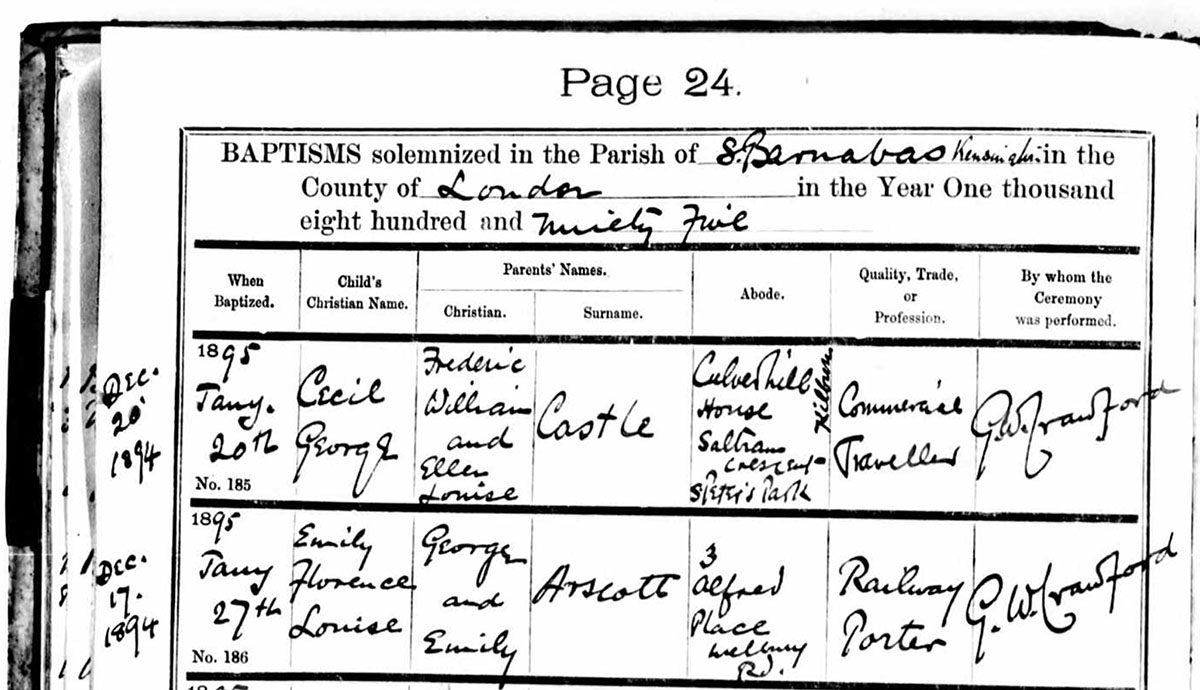 Page 24.
BAPTISMS solemnized in the Parish of S. Barnabas Kensington in the
County of London in the Year One thousand
eight hundred and Ninety Five
When
Baptized.
Child's
Christian Name.
Parents' Names.
Christian.
Surname.
Abode.
Quality, Trade,
or
Profession.
By whom the
Ceremony
was performed.
Dec.
20
1894
1895
Jany.
20th
No. 185
Cecil
George
Frederic
William
and
Ellen
Louise
Castle
Culverhill
House
Saltram
Crescent
S Peter's Park
Kilburn
Commercial
Traveller
G. W. Crawford
Dec.
17.
1894
1895
Jany
27th
No. 186
Emily
Florence
Louise
George
and
Emily
Arscott
3
Alfred
Place
Melbury
Rd.
Railway
Porter
G. W. Crawford